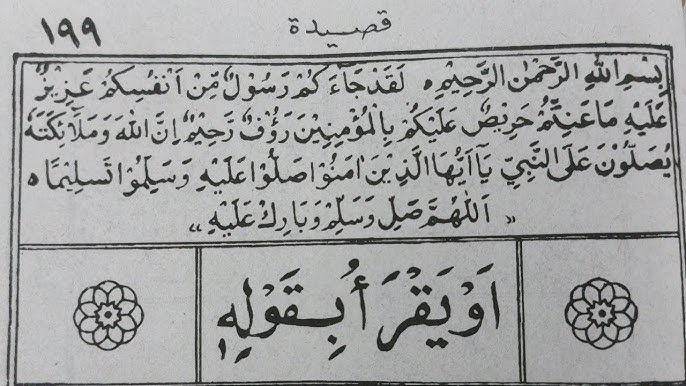 قصيدة
١٩٩
بِسْمِ اللهِ الرَّحْمٰنِ الرَّحِيْمِ ه لَقَدْ جَآءَ كُمْ رَسُوْلٌ مِّنْ اَنْفُسِكُمْ عَزِيْزٌ
عَلَيْهِ مَا عَنِتُّمْ حَرِيْصٌ عَلَيْكُمْ بِالْمُؤْمِنِيْنَ رَؤُفٌ رَحِيْمٌ اِنَّ اللهَ وَمَلَآئِكَتَهُ
يُصَلُّوْنَ عَلَى النَّبِيِّ يَآ اَيُّهَا الَّذِيْنَ اٰمَنُوْا صَلُّوْا عَلَيْهِ وَسَلِّمُوْا تَسْلِيْمًا ه
« اَللّٰهُمَّ صَلِّ وَسَلِّمْ وَبَارِكْ عَلَيْهِ »
اَوْ يَقْرَأُ بِقَوْلِهِ